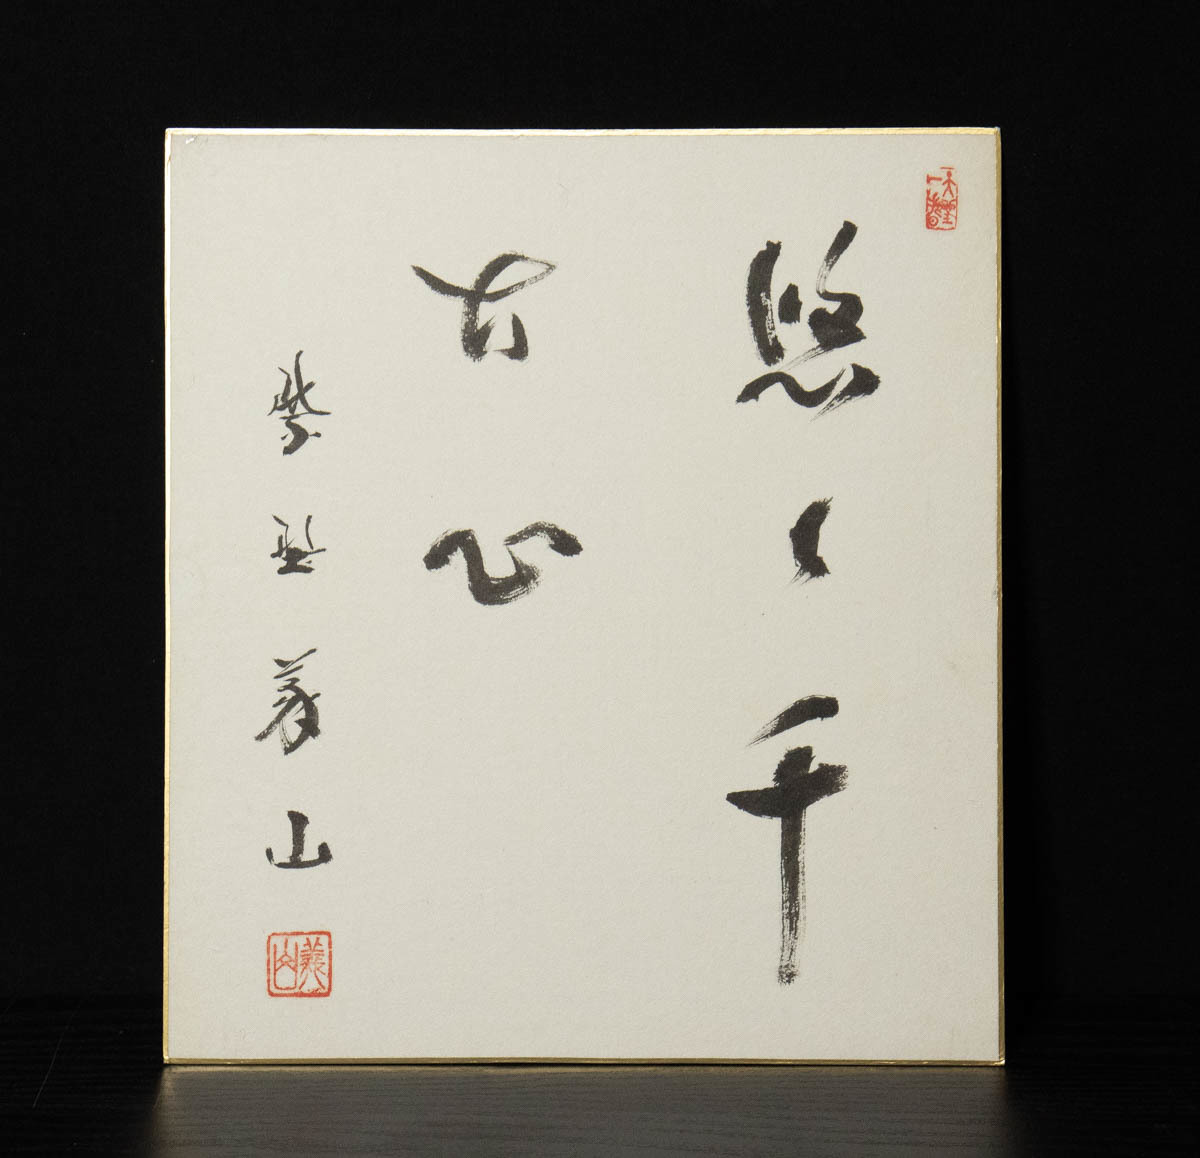 悠々千
古心
紫野義山
義山